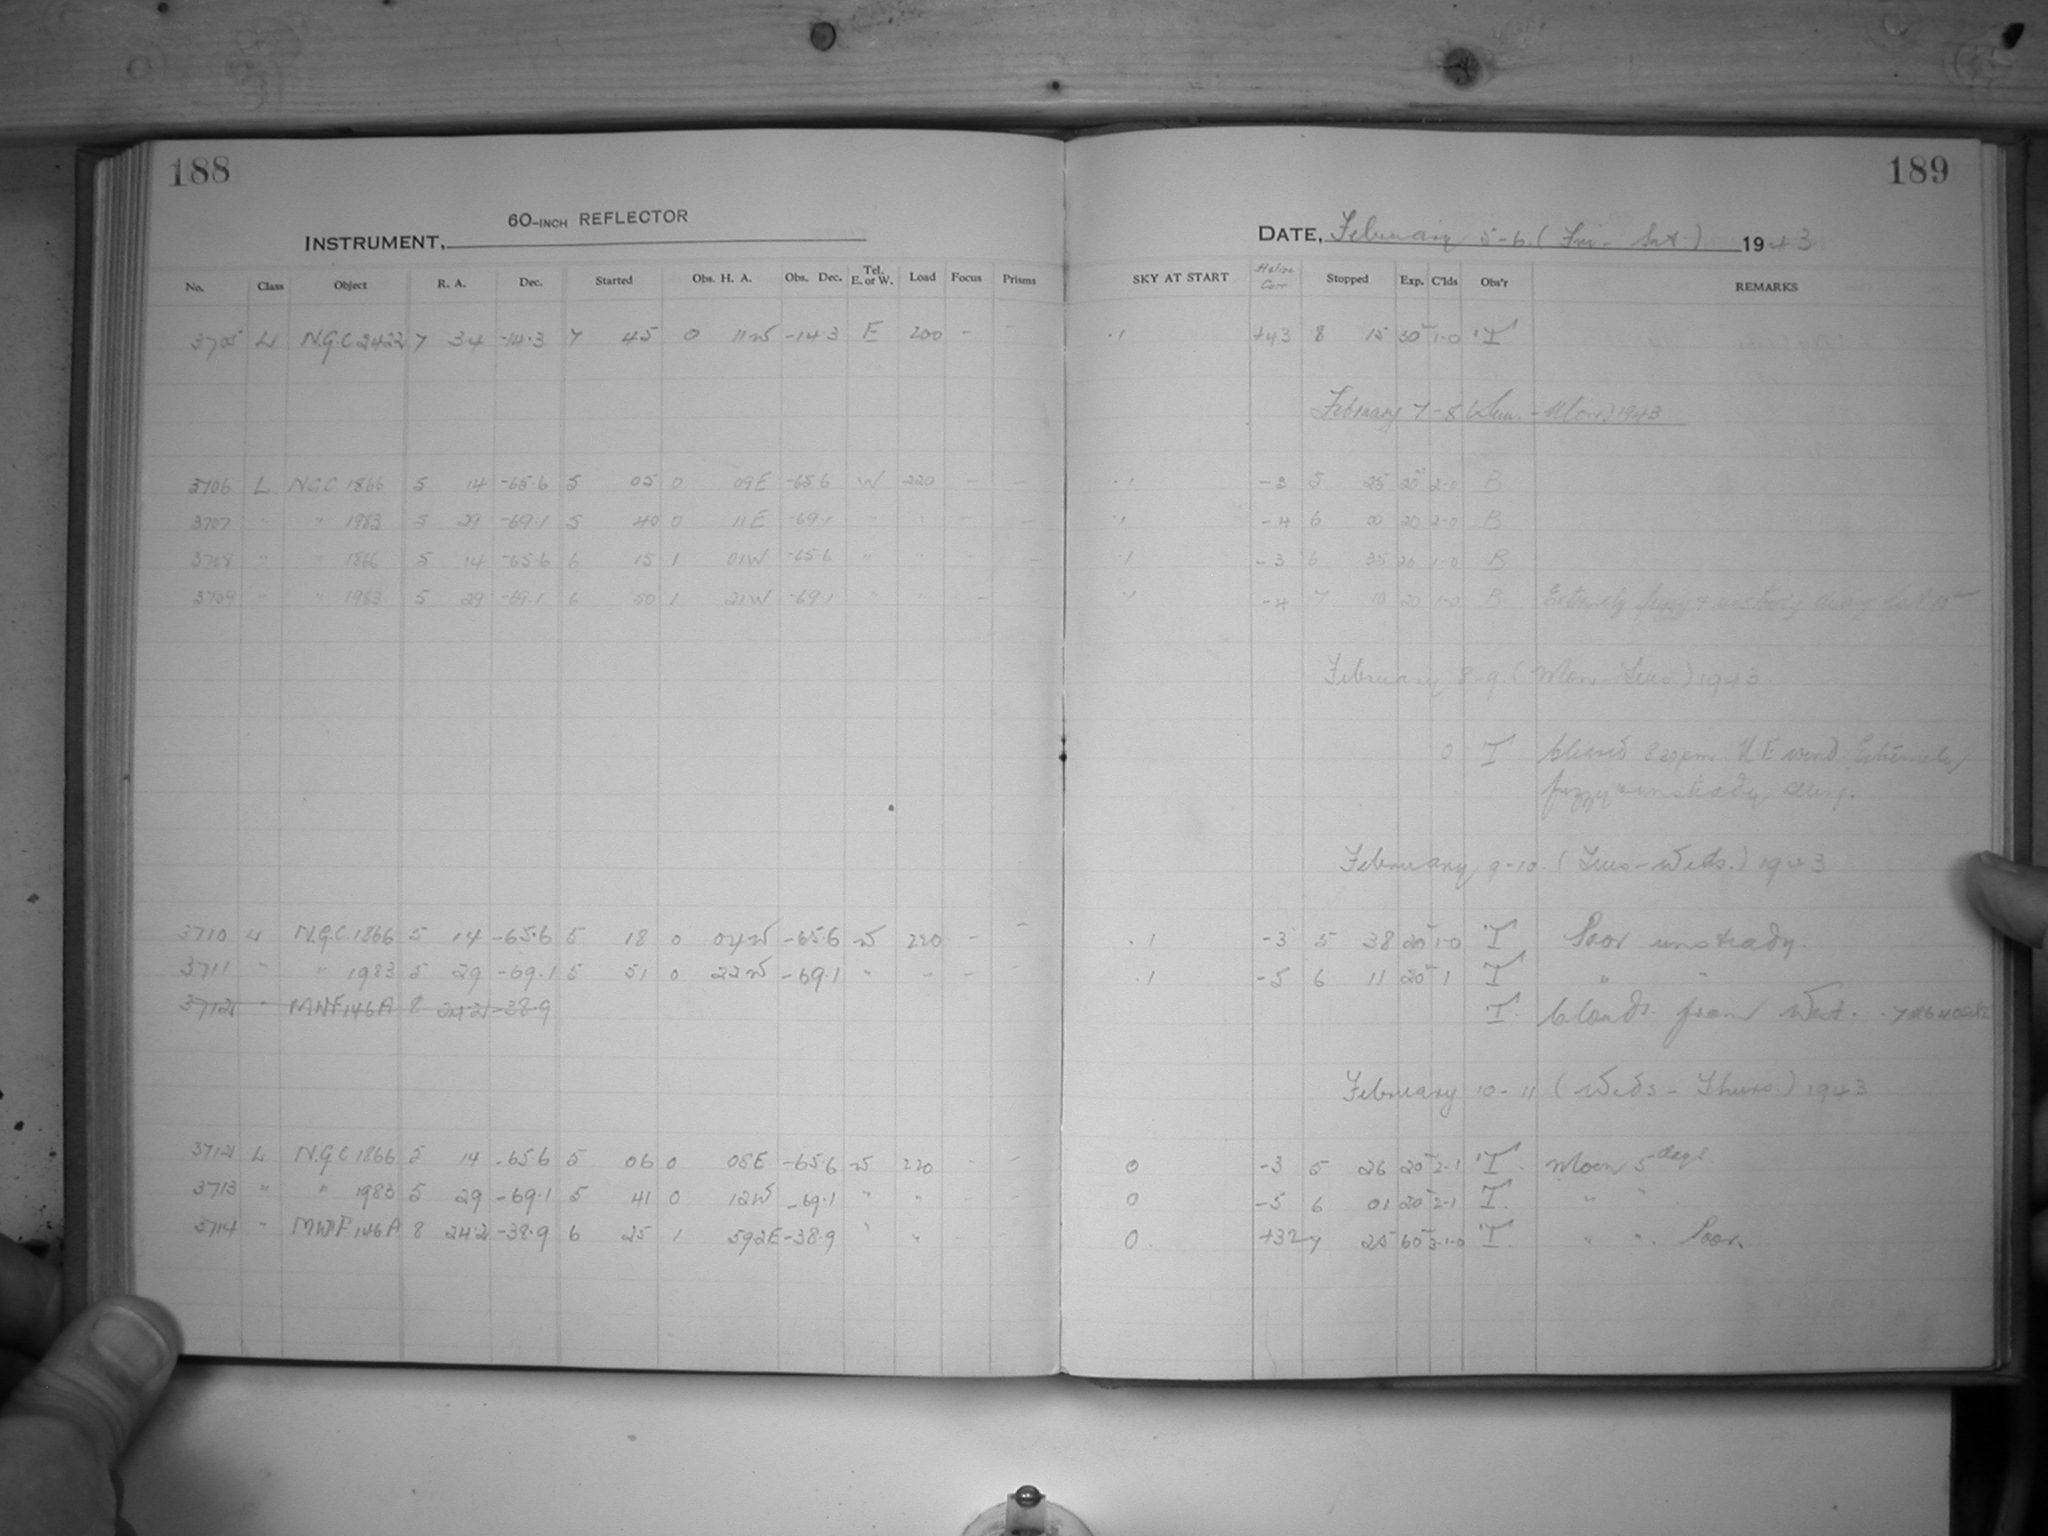 188
60-INCH REFLECTOR
INSTRUMENT,
No. Class Object R. A. Dec. Started Obs. H. A. Obs. Dec. Tel. E. or W. Load Focus Prisms
3705 L N.G.C 2422 7 34 -14.3 7 45 0 11W -14.3 E 200 - -
3706 L NGC 1866 5 14 -65.6 5 05 0 09E -65.6 W 220 - -
3707 " " 1983 5 29 -69.1 5 40 0 11E -69.1 " " - -
3708 " " 1866 5 14 -65.6 6 15 1 01W -65.6 " " - -
3709 " " 1983 5 29 -69.1 6 50 1 21W -69.1 " " - -
3710 L N.G.C. 1866 5 14 -65.6 5 18 0 04W -65.6 W 220 - -
3711 " " 1983 5 29 -69.1 5 51 0 22W -69.1 " " - -
3712 " MWF146A 8 24.2 -38.9
3712 L N.G.C 1866 5 14 -65.6 5 06 0 08E -65.6 W 220 - -
3713 " " 1983 5 29 -69.1 5 41 0 12W -69.1 " " - -
3714 " MWF 146A 8 24.2 -38.9 6 25 1 592E -38.9 " " - -
189
DATE, February 5-6 (Fri - Sat) 1943
SKY AT START Helio Corr Stopped Exp. C'lds Obs'r REMARKS
.1 +43 8 15 30 1-0 T
February 7-8 (Sun. - Mon) 1943
.1 -3 5 25 20 2-0 B
.1 -4 6 00 20 2-0 B
.1 -3 6 35 20 1-0 B
.1 -4 7 10 20 1-0 B Extremely fuzzy & unsteady during last 10m
February 8-9 (Mon - Tues) 1943
0 T 820pm N E wind Extremely
fuzzy unsteady
February 9-10. (Tues - Weds.) 1943
.1 -3 5 38 20 1-0 T Poor unsteady.
.1 -5 6 11 20 1 T " "
T. Clouds from West.
February 10-11 (Weds - Thurs) 1943
0 -3 5 26 20 2-1 T. Moon 5 days
0 -5 6 01 20 2-1 T. " "
0. +32 7 25 60 3-1-0 T. " " Poor.